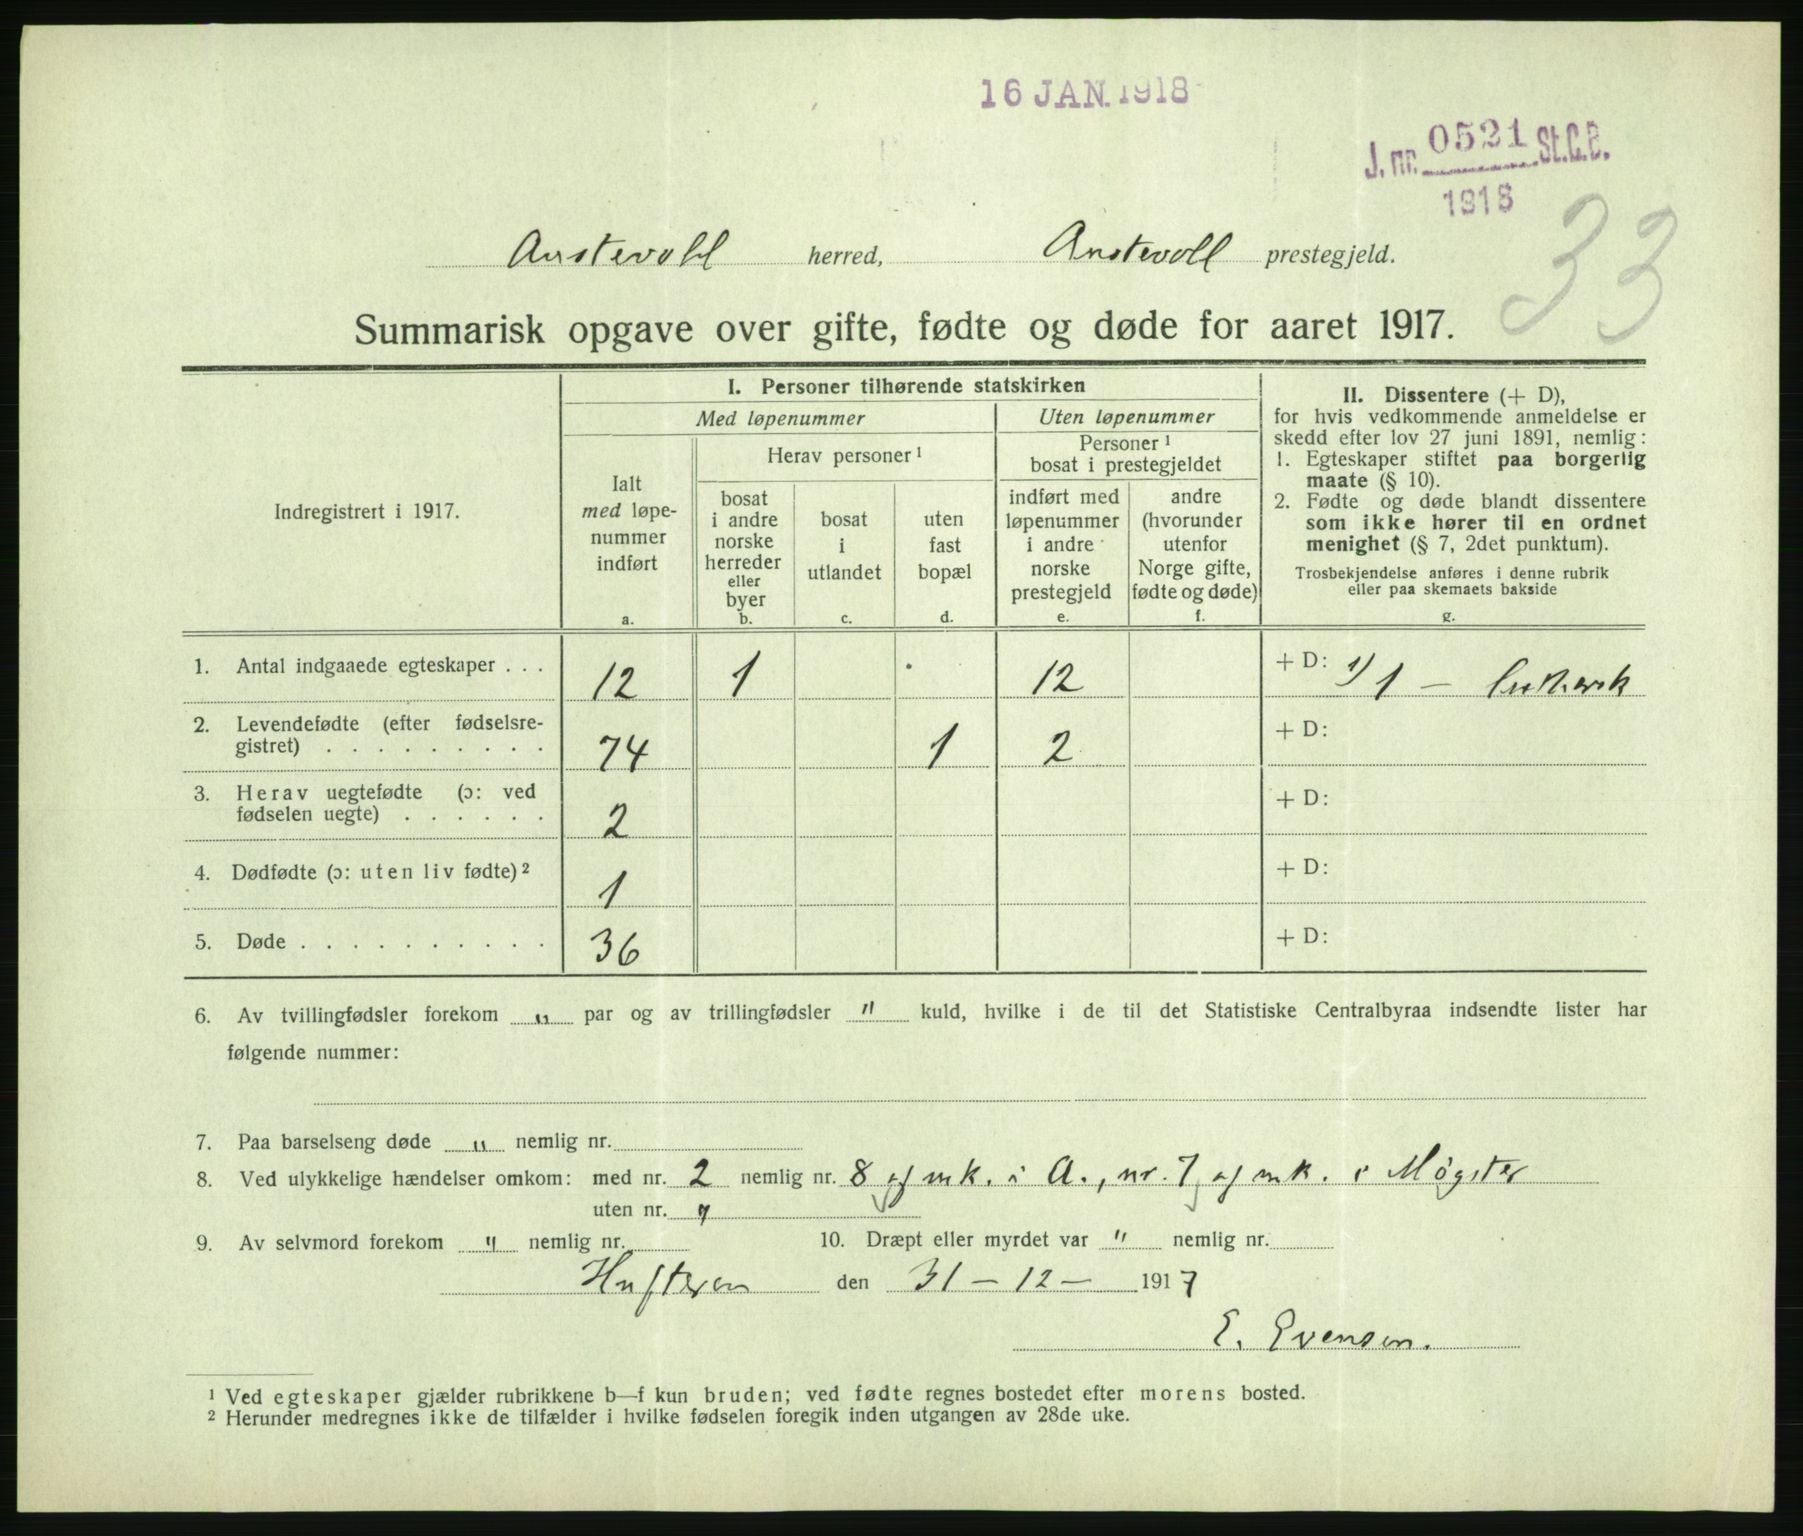 16 JAN. 1918
J. nr. 0521 St.C.B.
1918
33
Austevoll herred, Austevoll prestegjeld.
Summarisk opgave over gifte, fødte og døde for aaret 1917.
Indregistrert i 1917.
I. Personer tilhørende statskirken
Med løpenummer
Uten løpenummer
Ialt
med løpe-
nummer
indført
a.
Herav personer 1
bosat
i andre
norske
herreder
eller
byer
b.
bosat
i
utlandet
c.
uten
fast
bopæl
d.
Personer 1
bosat i prestegjeldet
indført med
løpenummer
i andre
norske
prestegjeld
e.
andre
(hvorunder
utenfor
Norge gifte,
fødte og døde)
f.
II. Dissentere (+ D),
for hvis vedkommende anmeldelse er
skedd efter lov 27 juni 1891, nemlig:
1. Egteskaper stiftet paa borgerlig
maate (§ 10).
2. Fødte og døde blandt dissentere
som ikke hører til en ordnet
menighet (§ 7, 2det punktum).
Trosbekjendelse anføres i denne rubrik
eller paa skemaets bakside
g.
1. Antal indgaaede egteskaper . . . 12 1 12 + D: 1) 1 – luthersk
2. Levendefødte (efter fødselsre-
gistret) . . . . . . . . . 74 1 2 + D:
3. Herav uegtefødte (ɔ: ved
fødselen uegte) . . . . . . 2 + D:
4. Dødfødte (ɔ: uten liv fødte) 2 1 + D:
5. Døde . . . . . . . . . . 36 + D:
6. Av tvillingfødsler forekom " par og av trillingfødsler " kuld, hvilke i de til det Statistiske Centralbyraa indsendte lister har
følgende nummer:
7. Paa barselseng døde " nemlig nr.
8. Ved ulykkelige hændelser omkom: med nr. 2 nemlig nr. 8 af mk. i A., nr. 7 af mk. i Møgster
uten nr. "
9. Av selvmord forekom " nemlig nr. 10. Dræpt eller myrdet var " nemlig nr.
Hufteren den 31 – 12 – 1917
E. Evensen.
1 Ved egteskaper gjælder rubrikkene b—f kun bruden; ved fødte regnes bostedet efter morens bosted.
2 Herunder medregnes ikke de tilfælder i hvilke fødselen foregik inden utgangen av 28de uke.